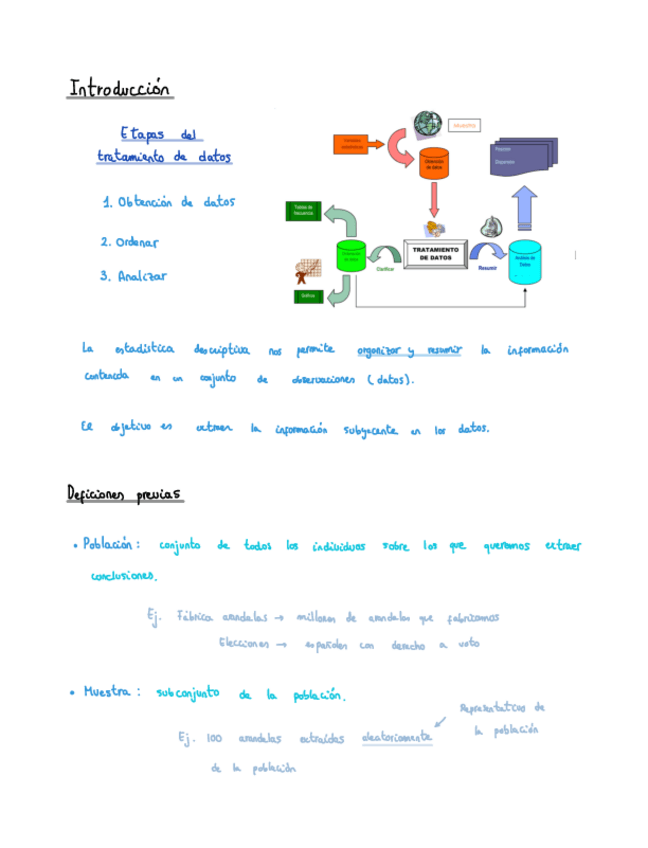 Introducción
Etapas del
tratamiento de datos
1. Obtención de datos
2. Ordenar
3. Analizar
MUESTRA
Obtención
de datos
Tablas de
frecuencia
TRATAMIENTO
DE DATOS
Clarificar
Resumir
Análisis de
Datos
Gráficos
La estadística descriptiva nos permite organizar y resumir la información
contenida en un conjunto de observaciones (datos).
El objetivo es extraer la información subyacente en los datos.
Deficiones previas
• Población: conjunto de todos los individuos sobre los que queremos extraer
conclusiones.
Ej. Fábrica arandelas → millones de arandelas que fabricamos
Elecciones → españoles con derecho a voto
• Muestra: subconjunto de la población.
Representativo de
la población
Ej. 100 arandelas extraídas aleatoriamente
de la población